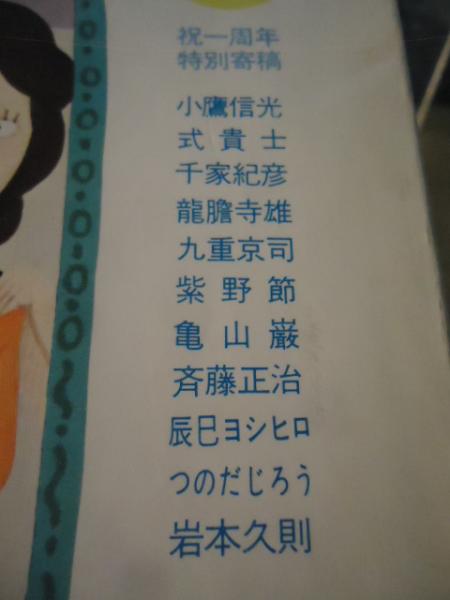 祝一周年
特別寄稿
小鷹信光
式貴士
千家紀彦
龍膽寺雄
九重京司
紫野節
亀山巌
斉藤正治
辰巳ヨシヒロ
つのだじろう
岩本久則